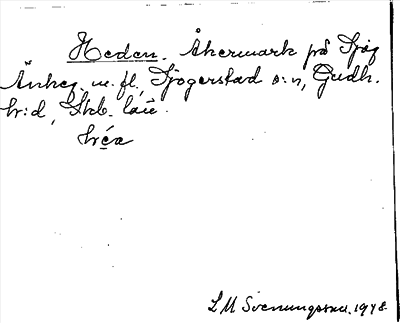 Heden. Åkermark på Sjög
Änkeg. m. fl., Sjogerstad s:n, Gudh.
hr:d, Skb. län.
hέa
L M Svenungsson. 1948.